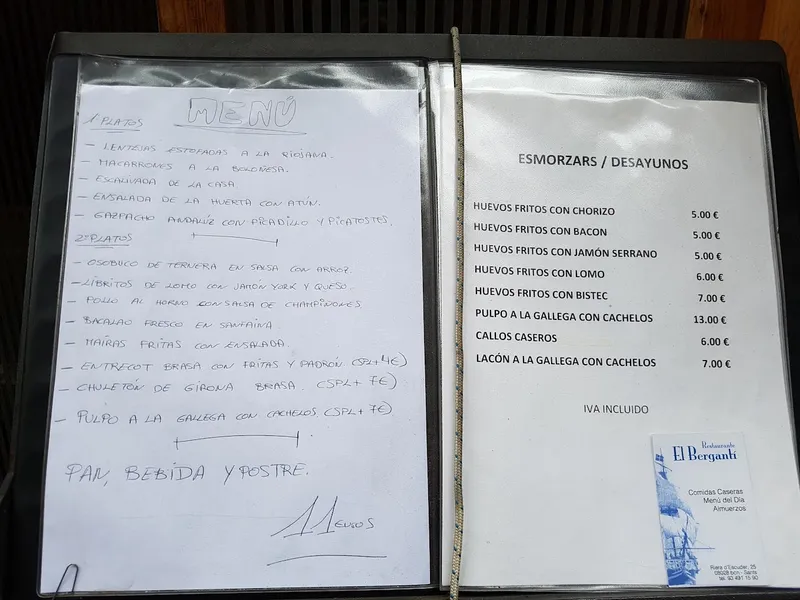 MENÚ
1ºPLATOS
- LENTEJAS ESTOFADAS A LA RIOJANA.
- MACARRONES A LA BOLOÑESA.
- ESCALIVADA DE LA CASA
- ENSALADA DE LA HUERTA CON ATÚN.
- GAZPACHO ANDALUZ CON PICADILLO Y PICATOSTES.
2ºPLATOS
- OSOBUCO DE TERNERA EN SALSA CON ARROZ.
- LIBRITOS DE LOMO CON JAMON YORK Y QUESO.
- POLLO AL HORNO CON SALSA DE CHAMPIÑONES
- BACALAO FRESCO EN SANFAINA
- MAIRAS FRITAS CON ENSALADA.
- ENTRECOT BRASA CON FRITAS Y PADRÓN (SPL+4€)
- CHULETÓN DE GIRONA BRASA. (SPL+ 7€)
- PULPO A LA GALLEGA CON CACHELOS. (SPL+7€)
PAN, BEBIDA Y POSTRE.
11 EUROS
ESMORZARS / DESAYUNOS
HUEVOS FRITOS CON CHORIZO 5.00 €
HUEVOS FRITOS CON BACON 5.00 €
HUEVOS FRITOS CON JAMÓN SERRANO 5.00 €
HUEVOS FRITOS CON LOMO 6.00 €
HUEVOS FRITOS CON BISTEC 7.00 €
PULPO A LA GALLEGA CON CACHELOS 13.00 €
CALLOS CASEROS 6.00 €
LACÓN A LA GALLEGA CON CACHELOS 7.00 €
IVA INCLUIDO
Restaurante
El Bergantí
Comidas Caseras
Menú del Día
Almuerzos
Riera d'Escuder, 25
08028 bcn - Sants
tel. 93 491 15 90